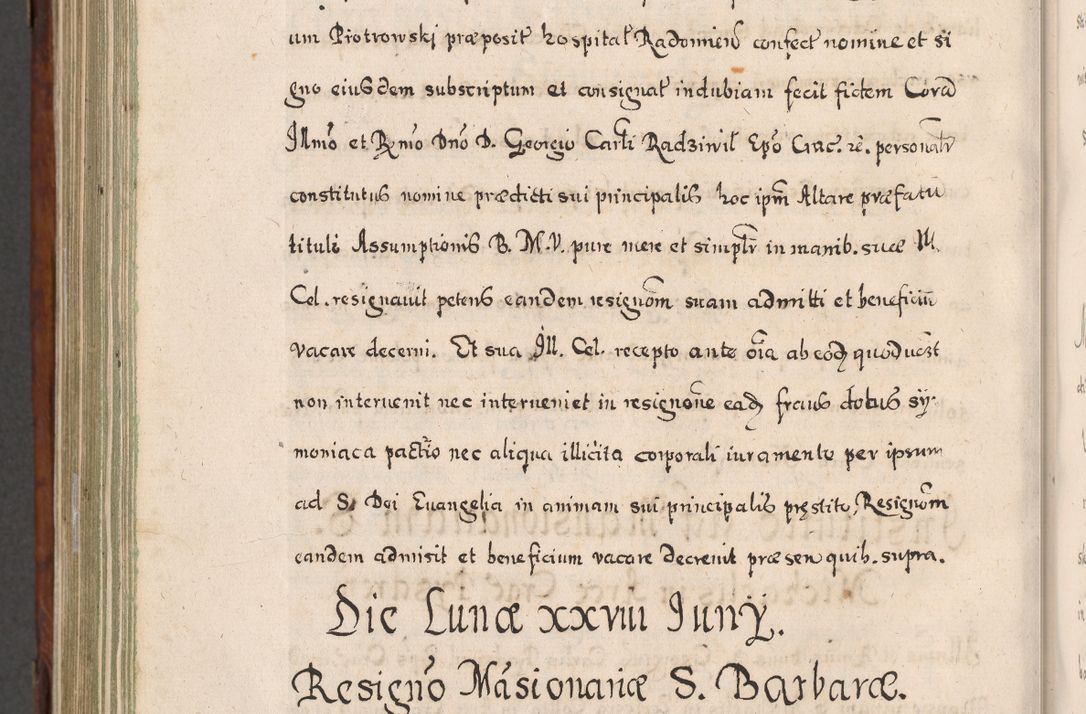 um Piotrowski præposit hospital Radomien confect nomine et si
gno eiusdem subscriptum et consignat indubiam fecit fidem Cora
Illmo et Rmo Dno D. Georgio Carli Radziwil Epo Crac. rc. personalr
constitutus nomine prædicti sui principalis hoc ipm Altare præfatu
tituli Assumptionis B. M. V. pure mere et simplr in manib. suæ Ill.
Cel. resignavit petens eandem resignom suam admitti et beneficiu
vacare decerni. Et sua Ill. Cel. recepto ante oia ab eod quod uezt
non intervenit nec interveniet in resignone ead fraus dolus sy-
moniaca pactio nec aliqua illicita corporali iuramento per ipsum
ad S. Dei Evangelia in animam sui principalis præstito, Resignom
eandem admisit et beneficium vacare decrevit præsen quib. supra.
Die Lunæ xxviii Iunÿ.
Resigno Masionariæ S. Barbaræ.